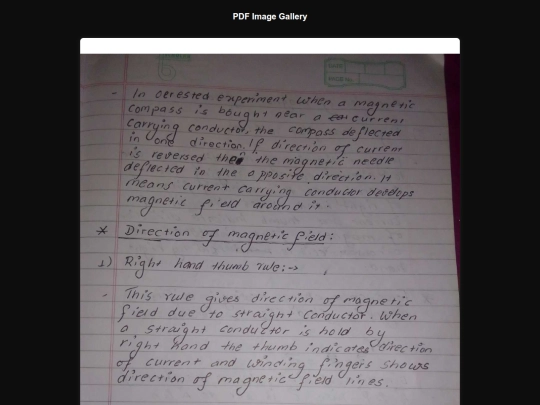 PDF Image Gallery
- In oerested experiment when a magnetic
compass is bought near a current
carrying conductor. the compass deflected
in one direction. If direction of current
is reversed then the magnetic needle
deflected in the opposite direction. It
means current carrying conductor develops
magnetic field around it.
* Direction of magnetic field:
1) Right hand thumb rule:→
- This rule gives direction of magnetic
field due to straight conductor. When
a straight conductor is hold by
right hand the thumb indicates direction
of current and winding fingers shows
direction of magnetic field lines.